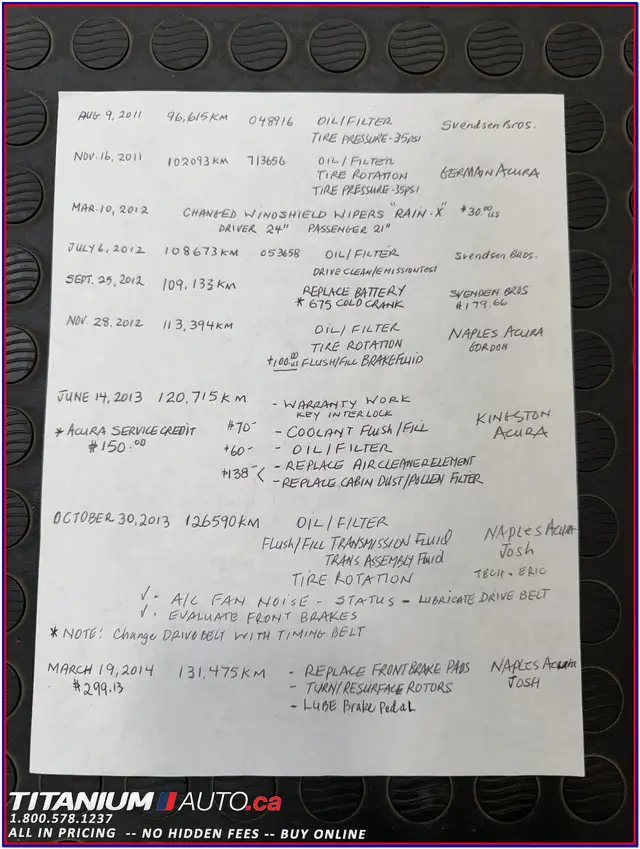 AUG 9, 2011 96,615KM 048916 OIL/FILTER Svendsen Bros.
TIRE PRESSURE-35psi
NOV.16, 2011 102093KM 713656 OIL/FILTER GERMAIN ACURA
TIRE ROTATION
TIRE PRESSURE-35PSI
MAR.10, 2012 CHANGED WINDSHIELD WIPERS "RAIN-X" $30.00 US
DRIVER 24" PASSENGER 21"
JULY 6, 2012 108673KM 053658 OIL/FILTER Svendsen Bros.
DRIVE CLEAN/EMISSION TEST
SEPT. 25, 2012 109,133KM REPLACE BATTERY SVENDEN BROS
* 675 COLD CRANK $179.66
NOV. 28, 2012 113,394KM OIL/FILTER NAPLES ACURA
TIRE ROTATION GORDON
$100.00 US FLUSH/FILL BRAKE FLUID
JUNE 14, 2013 120,715KM - WARRANTY WORK KINGSTON
KEY INTERLOCK ACURA
* ACURA SERVICE CREDIT $70- - COOLANT FLUSH/FILL
$150.00 $60- - OIL/FILTER
$138- < - REPLACE AIR CLEANER ELEMENT
- REPLACE CABIN DUST/POLLEN FILTER
OCTOBER 30, 2013 126590KM OIL/FILTER NAPLES ACURA
FLUSH/FILL TRANSMISSION FLUID JOSH
TRANS ASSEMBLY FLUID
TIRE ROTATION TECH - ERIC
✓ - A/C FAN NOISE - STATUS - LUBRICATE DRIVE BELT
✓ - EVALUATE FRONT BRAKES
* NOTE: Change DRIVE BELT WITH TIMING BELT
MARCH 19, 2014 131,475KM - REPLACE FRONT BRAKE PADS NAPLES ACURA
$299.13 - TURN/RESURFACE ROTORS JOSH
- LUBE Brake Pedal
TITANIUM AUTO.ca
1.800.578.1237
ALL IN PRICING -- NO HIDDEN FEES -- BUY ONLINE